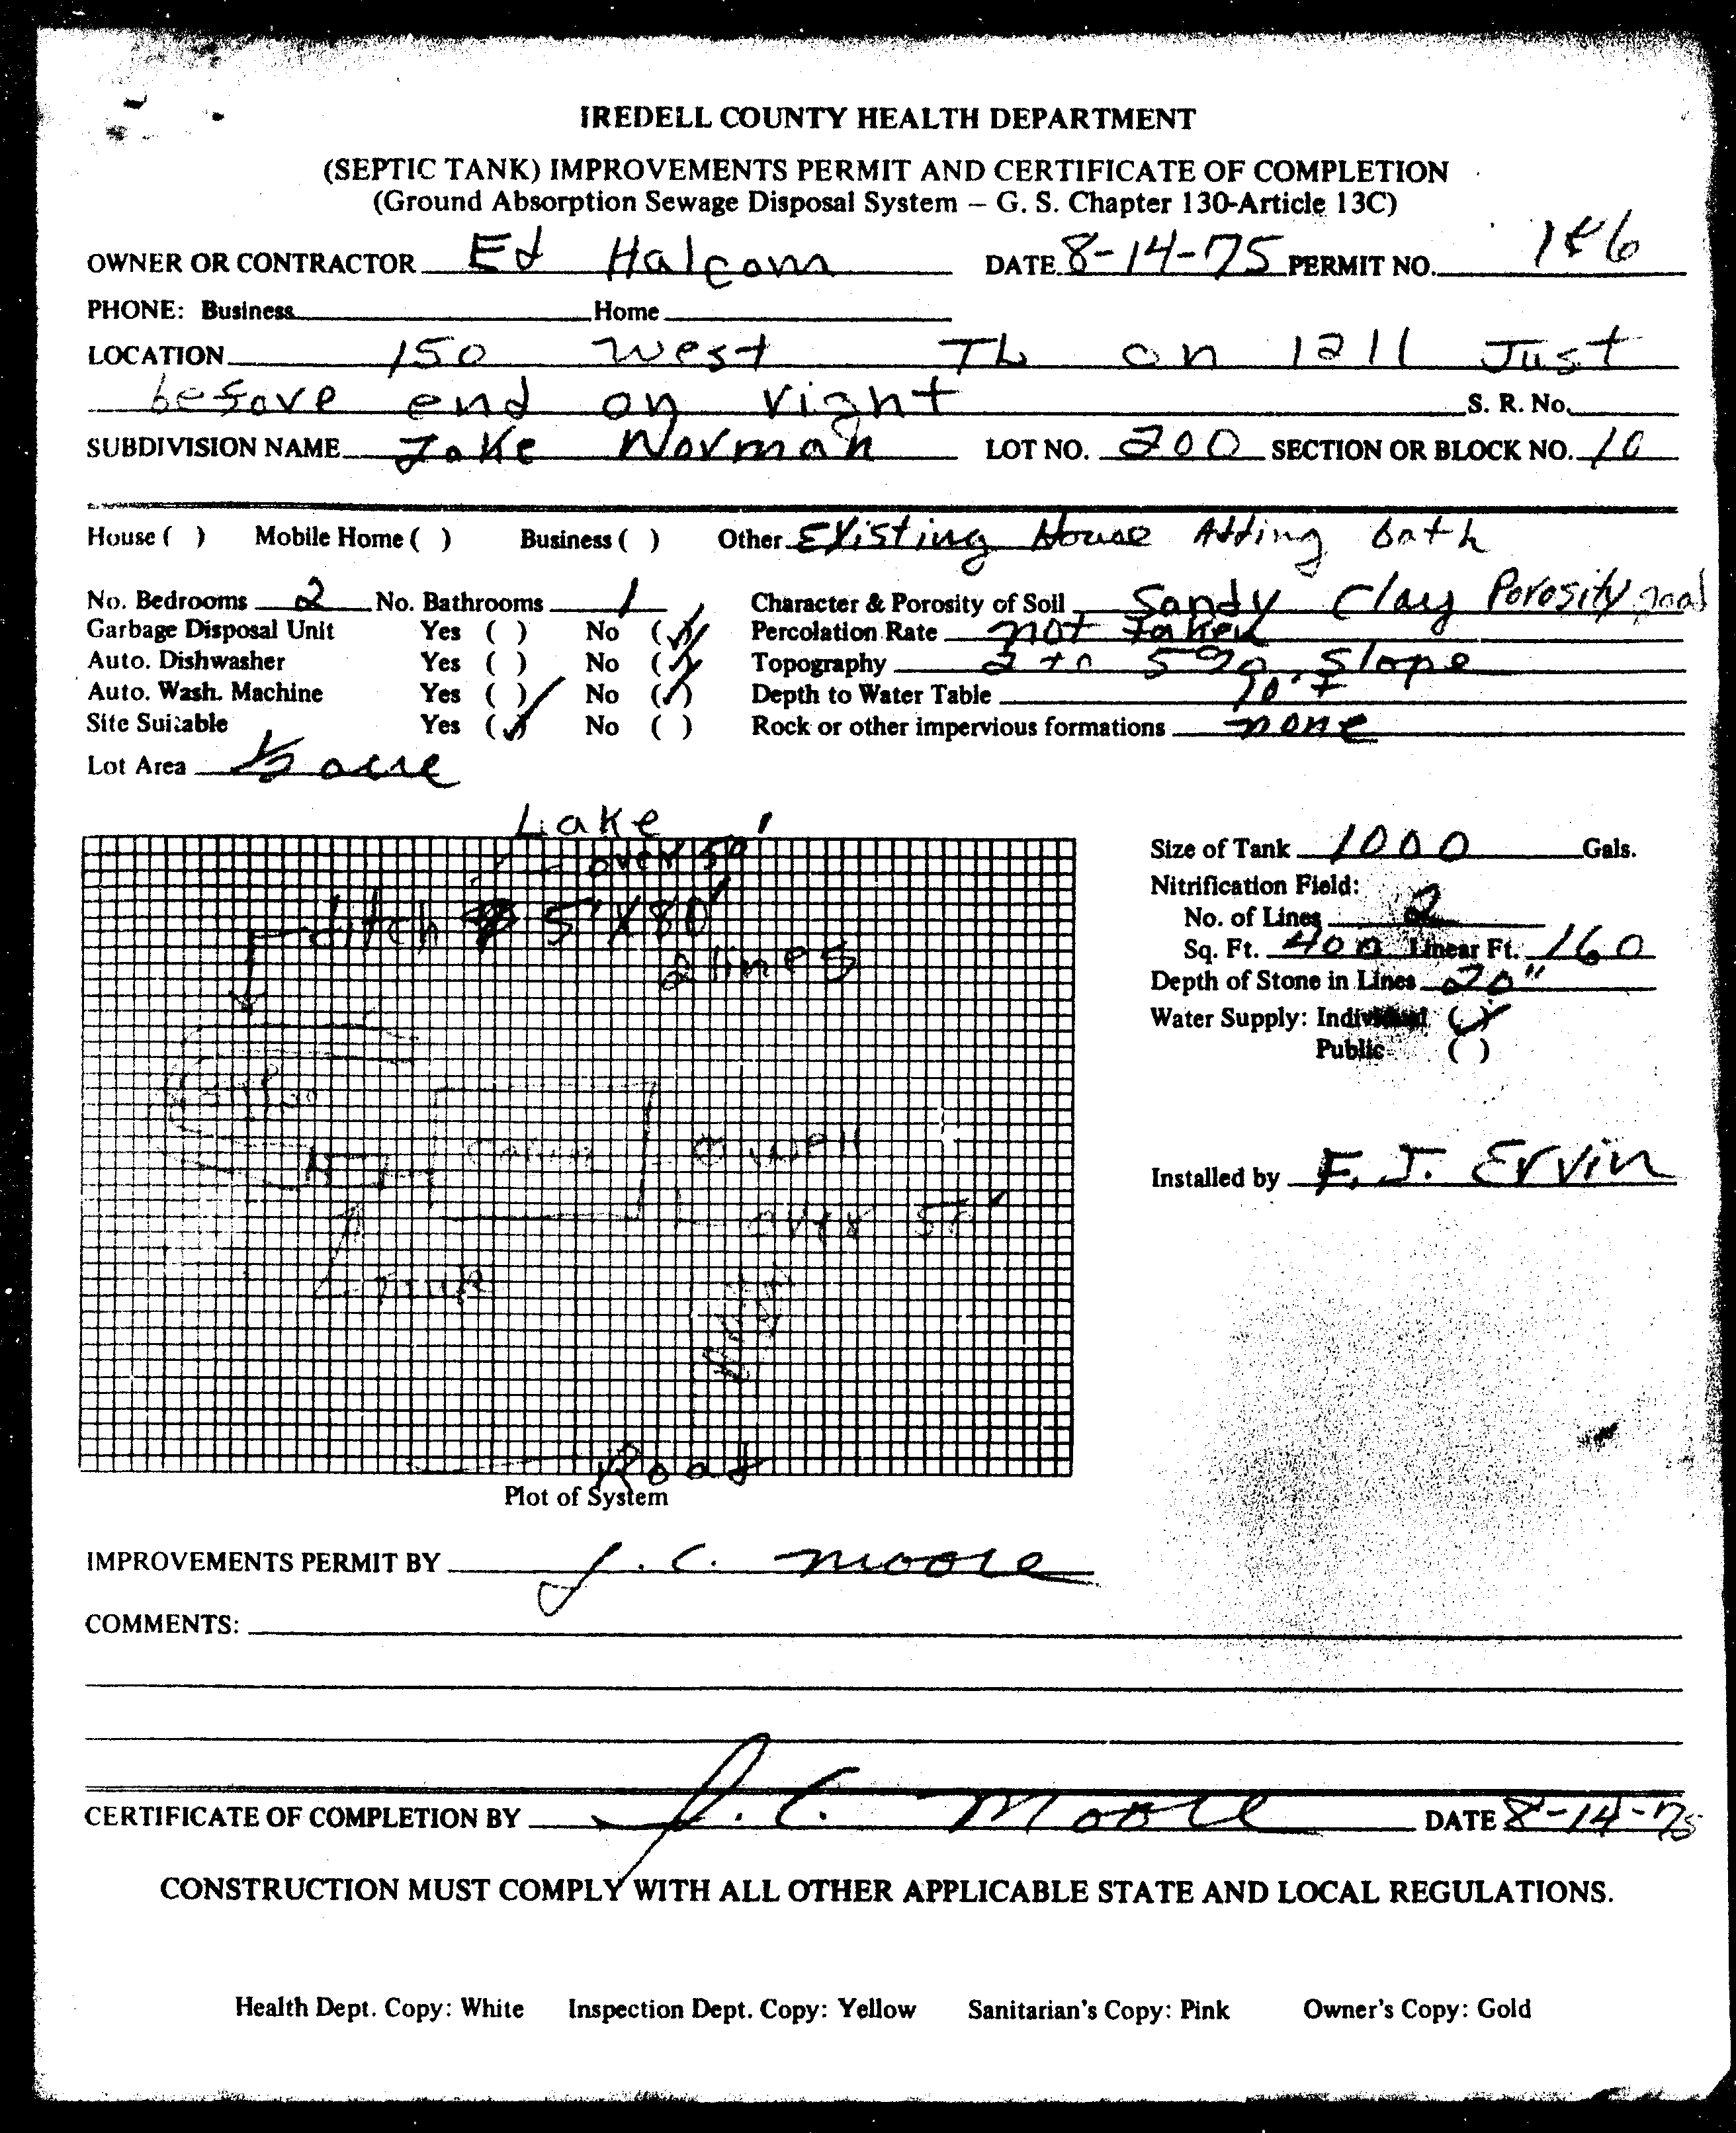 IREDELL COUNTY HEALTH DEPARTMENT
(SEPTIC TANK) IMPROVEMENTS PERMIT AND CERTIFICATE OF COMPLETION
(Ground Absorption Sewage Disposal System — G. S. Chapter 130-Article 13C)
OWNER OR CONTRACTOR Ed Halcom DATE 8-14-75 PERMIT NO.
PHONE: Business Home
LOCATION 150 West TL on 1211 Just
before end on right S. R. No.
SUBDIVISION NAME Lake Norman LOT NO. 200 SECTION OR BLOCK NO. 10
House ( ) Mobile Home ( ) Business ( ) Other Existing House Adding bath
No. Bedrooms 2 No. Bathrooms 1 Character & Porosity of Soil Sandy Clay Porosity good
Garbage Disposal Unit Yes ( ) No (✓) Percolation Rate not taken
Auto. Dishwasher Yes ( ) No (✓) Topography 2 to 5% slope
Auto. Wash. Machine Yes ( ) No (✓) Depth to Water Table 10'+
Site Suitable Yes (✓) No ( ) Rock or other impervious formations none
Lot Area ½ acre
Lake
over 50'
ditch 5' X 80'
2 lines
Cabin
well
over 50'
Tank
Road
Plot of System
Size of Tank 1000 Gals.
Nitrification Field:
No. of Lines 2
Sq. Ft. 400 Linear Ft. 160
Depth of Stone in Lines 20"
Water Supply: Individual (✓)
Public ( )
Installed by F. J. Ervin
IMPROVEMENTS PERMIT BY J. C. Moore
COMMENTS:
CERTIFICATE OF COMPLETION BY J. C. Moore DATE 8-14-75
CONSTRUCTION MUST COMPLY WITH ALL OTHER APPLICABLE STATE AND LOCAL REGULATIONS.
Health Dept. Copy: White Inspection Dept. Copy: Yellow Sanitarian's Copy: Pink Owner's Copy: Gold